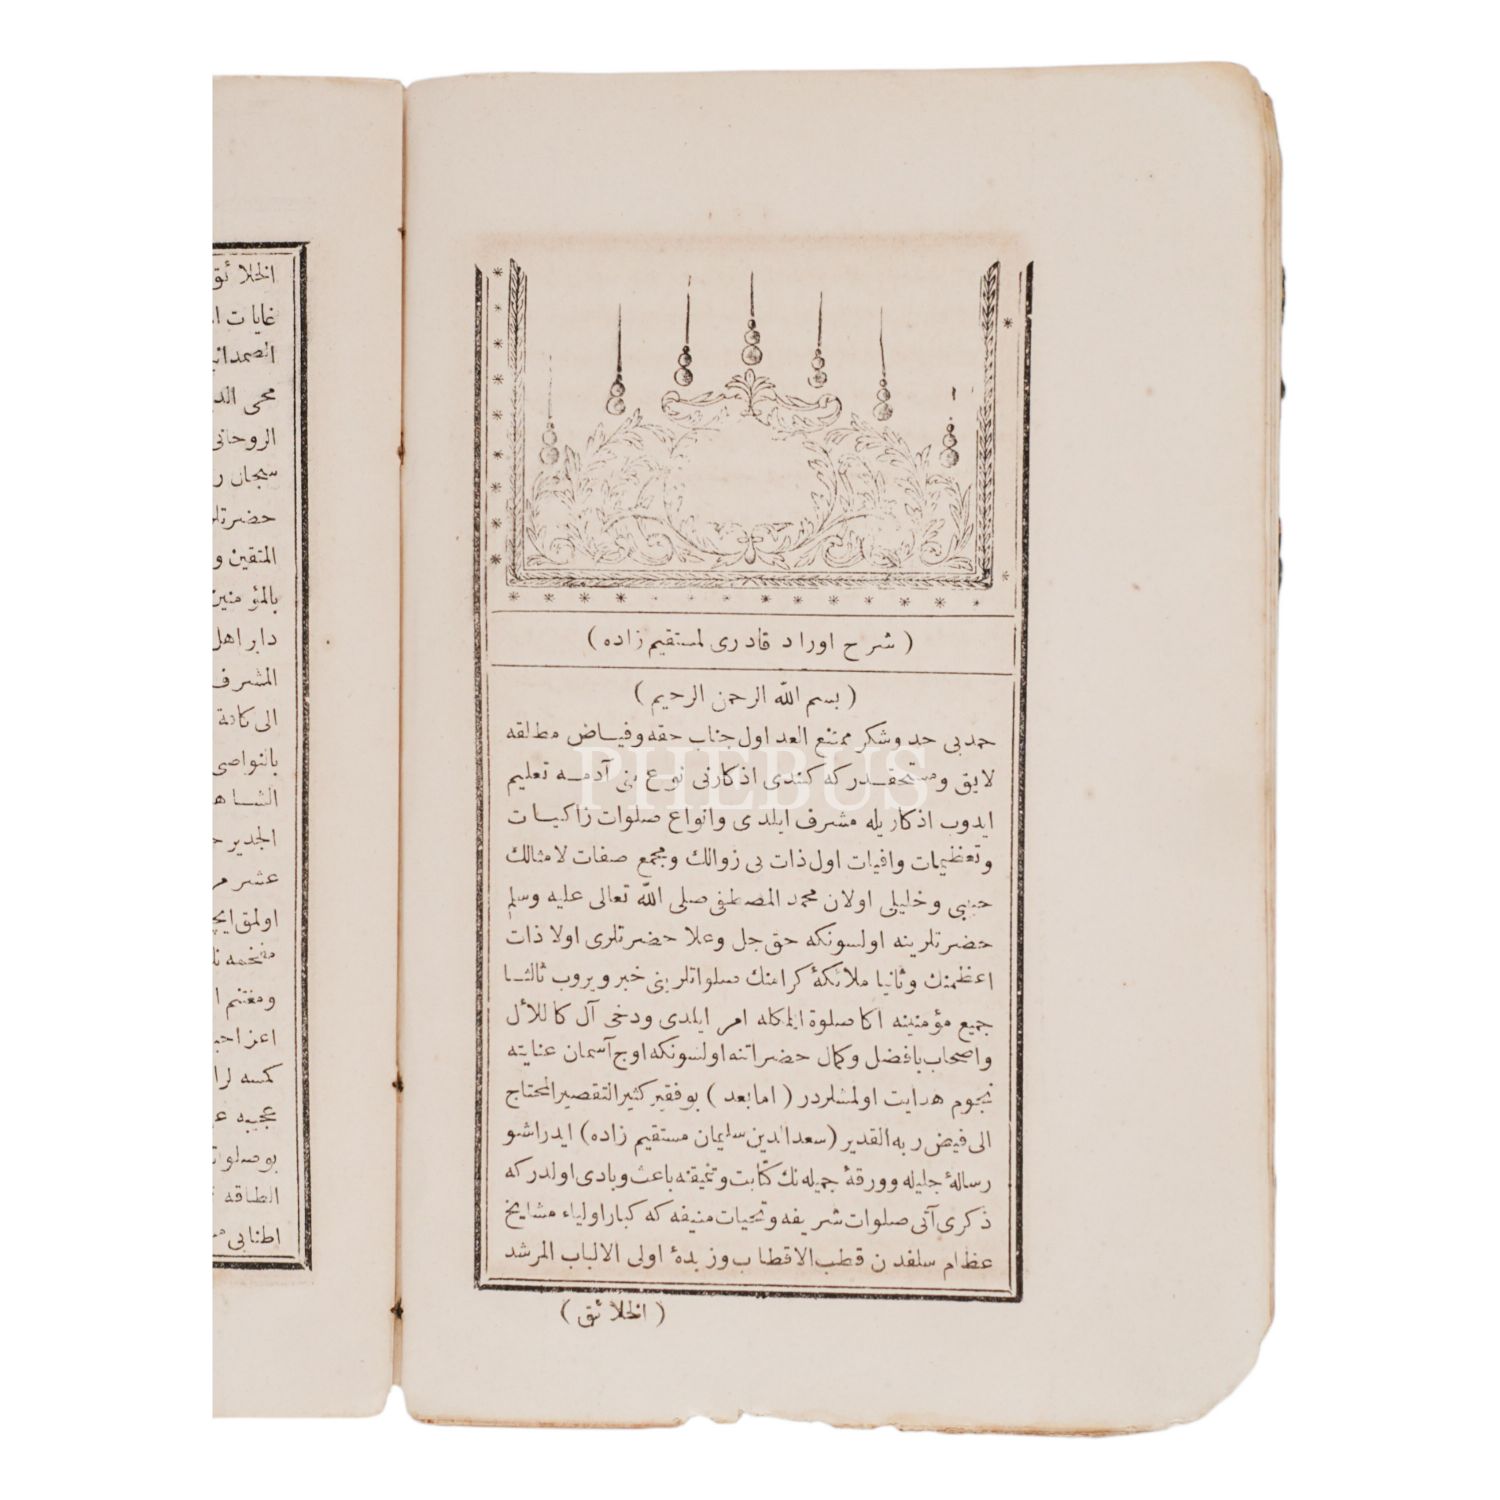 ( شرح اوراد قادرى لمستقيم زاده )
( بسم الله الرحمن الرحيم )
حمد بى حد وشكر ممتنع العد اول جناب حقه وفياض مطلقه
لايق ومستحقدر كه كندى اذكارنى نوع بنى آدمه تعليم
ايدوب اذكاريله مشرف ايلدى وانواع صلوات زاكيات
وتعظيمات وافيات اول ذات بى زوالك ومجمع صفات لامثالك
حبيبى وخليلى اولان محمد المصطفى صلى الله تعالى عليه وسلم
حضرتلرينه اولسونكه حق جل وعلا حضرتلرى اولا ذات
اعظمنك وثانيا ملائكۀ كرامنك صلواتلرينى خبر ويروب ثالثا
جميع مؤمنينه اكا صلوة ايلمكله امر ايلدى ودخى آل كاللأل
واصحاب بافضل وكمال حضراتنه اولسونكه اوج آسمان عنايته
نجوم هدايت اولمشلردر ( اما بعد ) بو فقير كثير التقصير المحتاج
الى فيض ربه القدير (سعد الدين سليمان مستقيم زاده) ايدر اشو
رسالۀ جليله وورقۀ جميله نك كتابت وتنميقنه باعث وبادى اولدر كه
ذكرى آتى صلوات شريفه وتحيات منيفه كه كبار اولياء مشايخ
عظام سلفدن قطب الاقطاب وزبدۀ اولى الالباب المرشد
( الخلائق )
الخلائق
غايات
محى
الروحانى
سبحان
المتقين و
بالمؤمنين
دابر اهل
المشرف
الى كافة
بالنواصى
الجدير
عشر
اولمق
ومغتنم
كمسه
عجيبه
الطاقه
اطنابى
PHEBUS